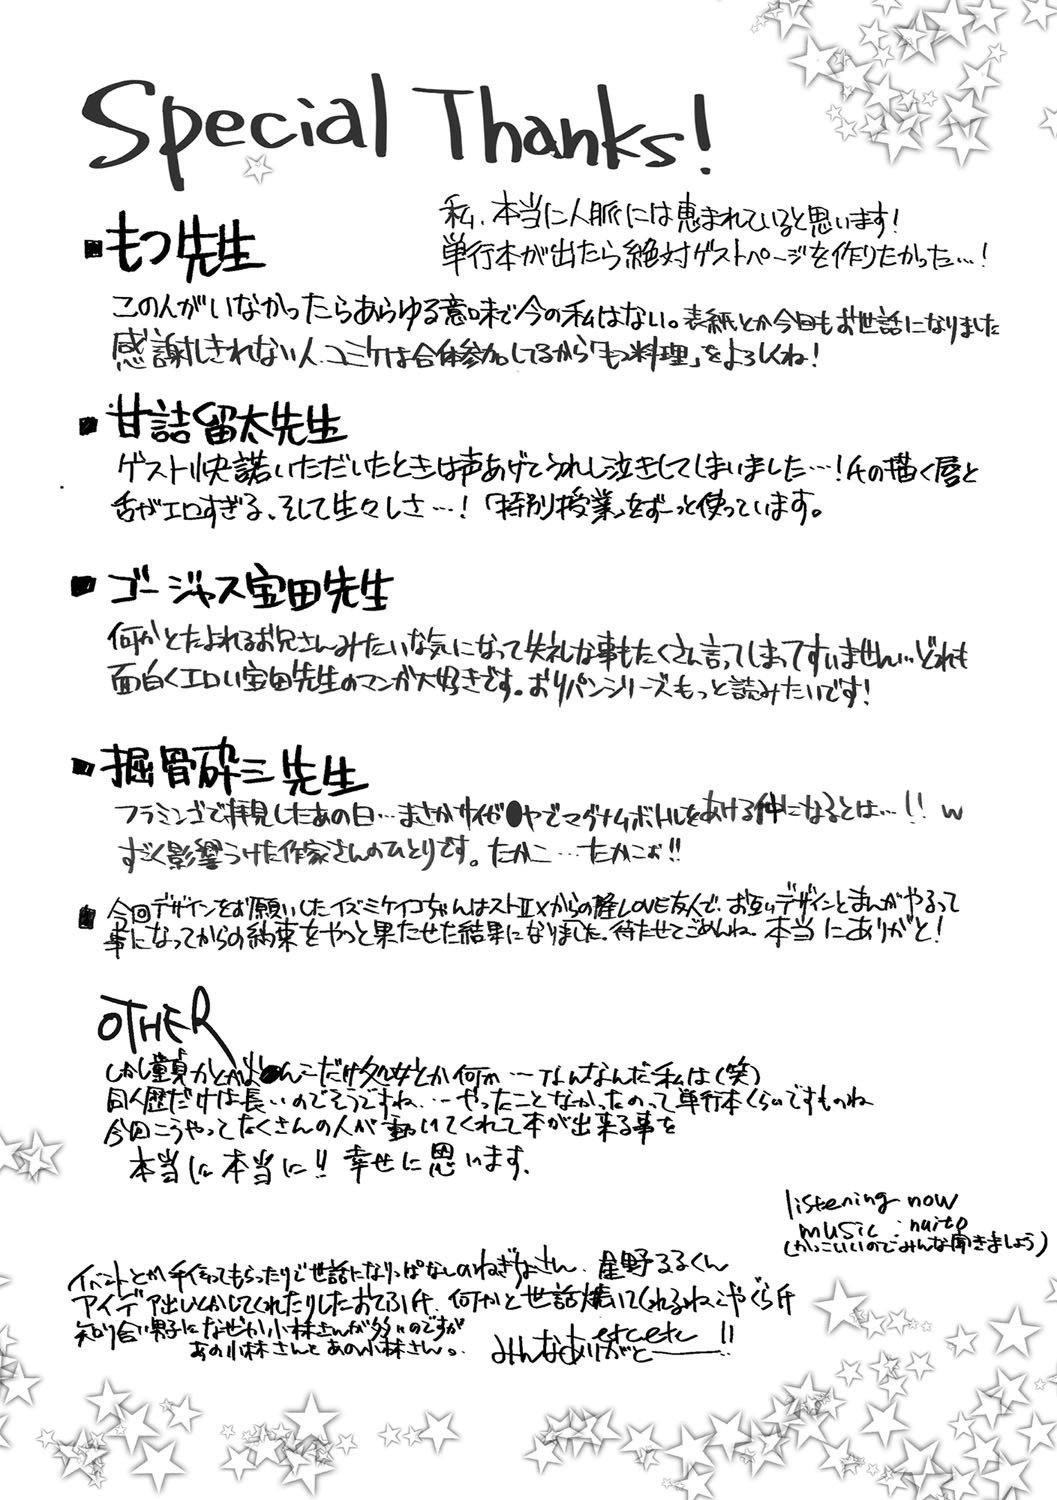 Special Thanks!
私、本当に人脈には恵まれていると思います!
単行本が出たら絶対ゲストページを作りたかった…!
■もつ先生
この人がいなかったらあらゆる意味で今の私はない。表紙とか今日もお世話になりました
感謝しきれない人、コミケは合体参加してるから「もつ料理」をよろしくね!
■甘詰留太先生
ゲスト快諾いただいたときは声あげてうれし泣きしてしまいました…!氏の描く唇と
舌がエロすぎる、そして生々しさ…!「特別授業」をずーっと使っています。
■ゴージャス宝田先生
何かとたよれるお兄さんみたいな気になって失礼な事もたくさん言ってしまってすいません…どれも
面白くエロい宝田先生のマンガ大好きです。おりパンシリーズもっと読みたいです!
■掘骨砕三先生
フラミンゴで拝見したあの日…まさかサイゼ●ヤでマグナムボトルをあける仲になるとは…!!w
すごく影響うけた作家さんのひとりです。たかこ…たかこぉ!!
■今回デザインをお願いしたイズミケイコちゃんはストⅡXからの隆LOVE友人で、お互いデザインとまんがやるって
事になってからの約束をやっと果たせた結果になりました。待たせてごめんね。本当にありがと!
OTHER
しかし童貞かとか●んこだけ処女とか何か…なんなんだ私は(笑)
同人歴だけは長いのでそうですね…やったことなかったのって単行本くらいですものね
今回こうやってたくさんの人が動いてくれて本が出来る事を
本当に本当に!!幸せに思います。
listening now
music : naito
(かっこいいのでみんな聞きましょう)
イベントとか手伝ってもらったりで世話になりっぱなしのねぎなさん、星野るるくん
アイデア出しとかしてくれたりしたおてふ氏、何かと世話焼いてくれるねこやぐら氏
知り合い男子になぜか小林さんが多いのですが
あの小林さんとあの小林さん。
etc etc
みんなありがと――!!